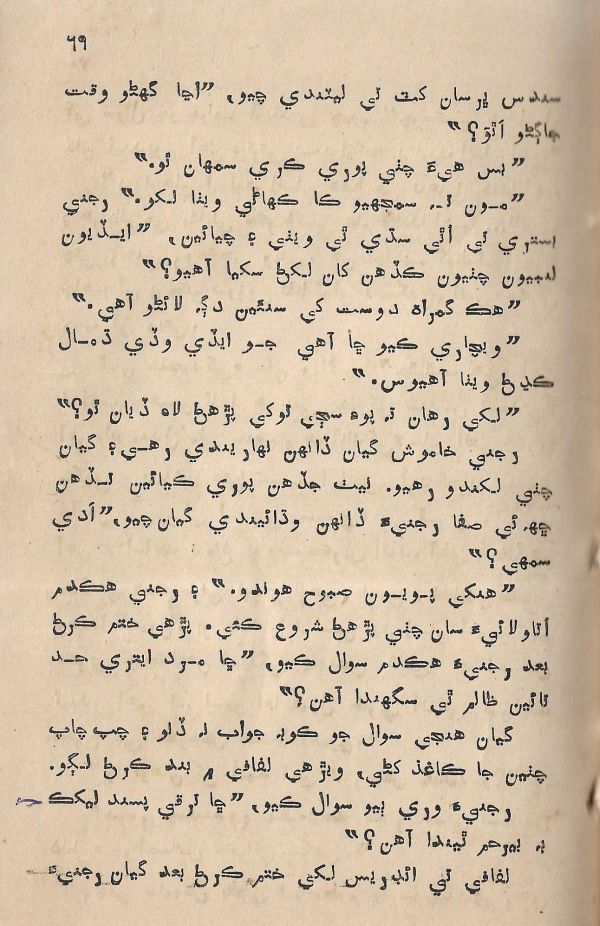 ٦٩
سندس ڀرسان کٽ تي ليٽندي چيو، ”اڃا گهڻو وقت
جاڳڻو اٿو؟“
”بس هيءَ چٺي پوري ڪري سمهان ٿو.“
”مـون تـ سمجهيو ڪا ڪهاڻي ويٺا لکو.“ رجني
بستري تي اٿي سڌي ٿي ويٺي ۽ چيائين، ”ايـڏيون
لنبيون چٺيون ڪڏهن کان لکڻ سکيا آهيو؟“
”هڪ گمراه دوست کي سنئين دڳ لائڻو آهي.“
”ويچاري ڪيو ڇا آهي جـو ايڏي وڏي ڌمـال
ڪڍڻ ويٺا آهيوس.“
”لکي رهان تـ پوءِ سڄي توکي پڙهڻ لاه ڏيان ٿو؟“
رجني خاموش گيان ڏانهن نهاريندي رهـي ۽ گيان
چٺي لکندو رهيو. نيٺ جڏهن پوري ڪيائين تـڏهن
ڇهـ ئي صفا رجنيءَ ڏانهن وڌائيندي گيان چيو، ”آدي
سمهي؟“
”هنکي پـويـون صبوح هوندو.“ ۽ رجني هڪدم
اتاولائيءَ سان چٺي پڙهڻ شروع ڪئي. پڙهي ختم ڪرڻ
بعد رجنيءَ هڪدم سوال ڪيو، ”ڇا مـرد ايتري حـد
تائين ظالم ٿي سگهندا آهن؟“
گيان هنجي سوال جو ڪوبـ جواب نـ ڏنو ۽ چپ چاپ
چٺين جا ڪاغذ کڻي، ويڙهي لفافي ۾ بند ڪرڻ لڳو.
رجنيءَ وري ٻيو سوال ڪيو، ”ڇا ترقي پسند ليکڪ
بـ بيرحم ٿيندا آهن؟“
لفافي تي ائڊريس لکي ختم ڪرڻ بعد گيان رجنيءَ